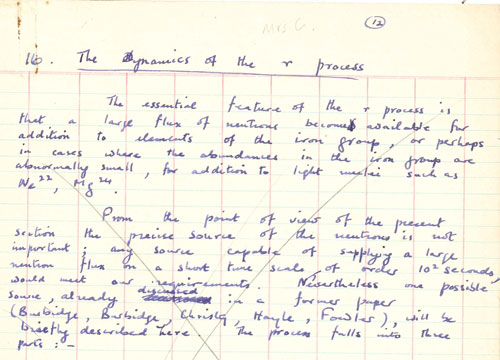 Mrs. C.
12
16. The Dynamics of the r process
The essential feature of the r process is
that a large flux of neutrons becomes available for
addition to elements of the iron group, or perhaps
in cases where the abundances in the iron group are
abnormally small, for addition to light nuclei such as
Ne²², Mg²⁴.
From the point of view of the present
section the precise source of the neutrons is not
important; any source capable of supplying a large
neutron flux on a short time scale, of order 10² seconds,
would meet our requirements. Nevertheless one possible
source, already discussed in a former paper
(Burbidge, Burbidge, Christy, Hoyle, Fowler), will be
briefly described here. The process falls into three
parts :-